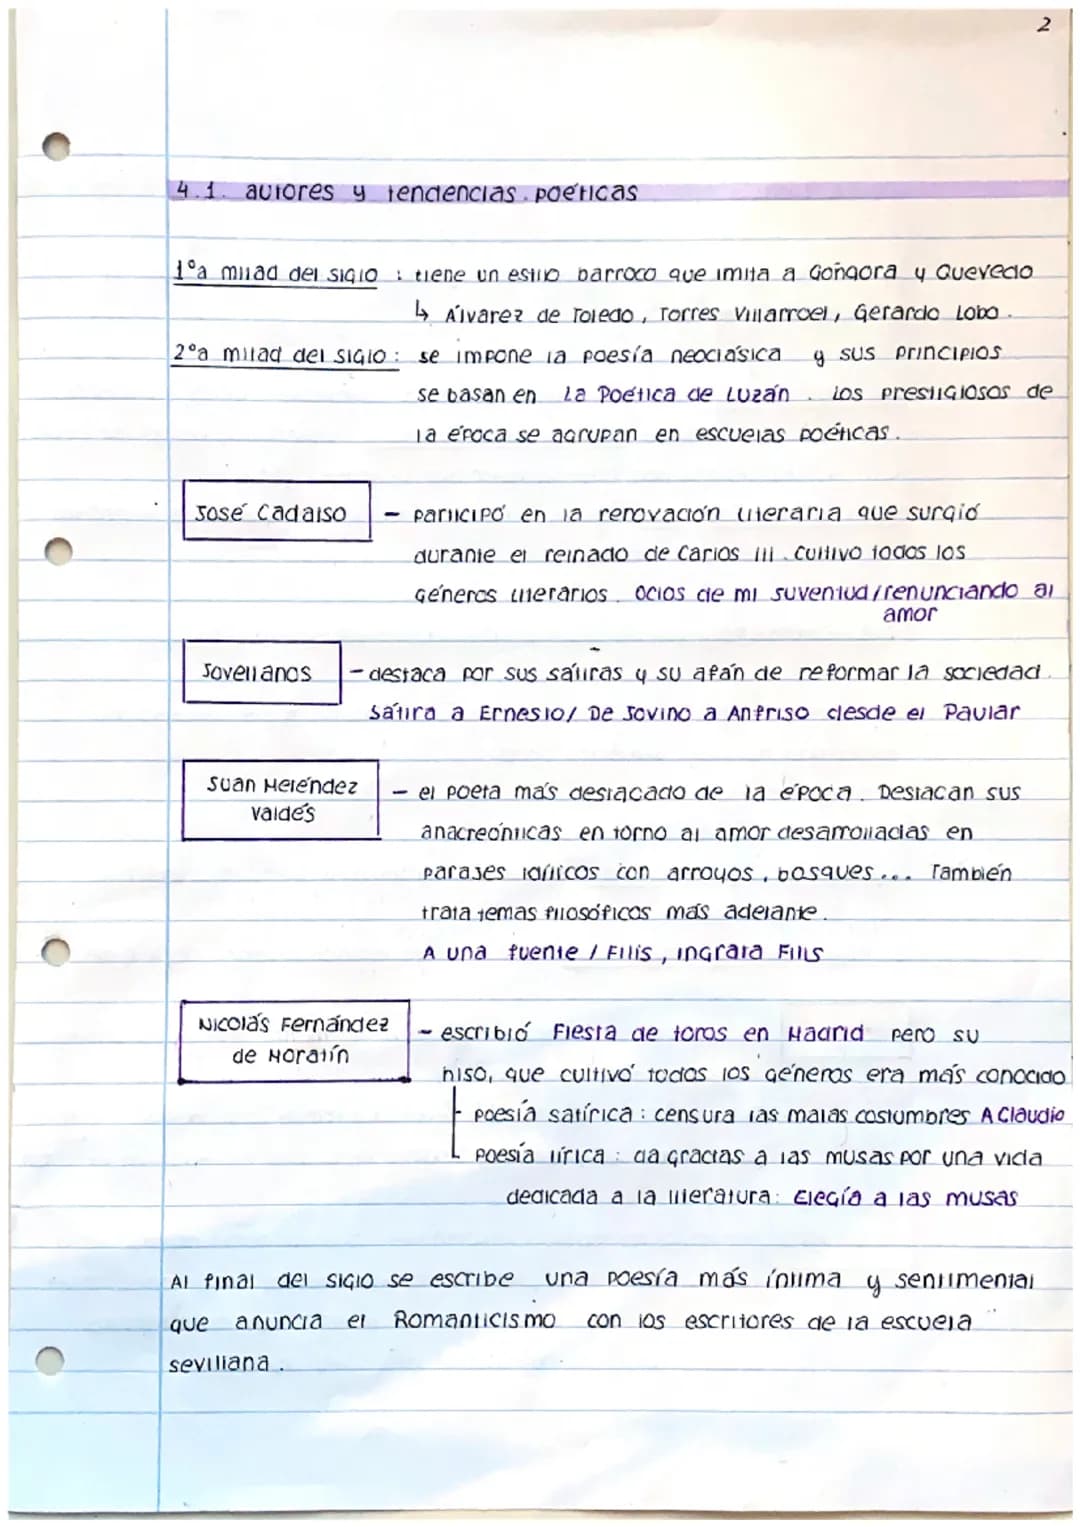 2
4.1. autores y tendencias poéticas
1ºa mitad del siglo : tiene un estilo barroco que imita a Góngora y Quevedo
↳ Álvarez de Toledo, Torres Villarroel, Gerardo Lobo.
2ºa mitad del siglo : se impone la poesía neoclásica y sus principios
se basan en La Poética de Luzán. Los prestigiosos de
la época se agrupan en escuelas poéticas.
José Cadalso - participó en la renovación literaria que surgió
durante el reinado de Carlos III. Cultivo todos los
géneros literarios. Ocios de mi juventud/renunciando al
amor
Jovellanos - destaca por sus sátiras y su afán de reformar la sociedad.
Sátira a Ernesto/ De Jovino a Anfriso desde el Paular
Juan Meléndez
Valdés
- el poeta más destacado de la época. Destacan sus
anacreónticas en torno al amor desarrolladas en
parajes idílicos con arroyos, bosques... También
trata temas filosóficos más adelante.
A una fuente / Filis, ingrata Filis
Nicolás Fernández
de Moratín
- escribió Fiesta de toros en Madrid pero su
hiso, que cultivó todos los géneros era más conocido
poesía satírica : censura las malas costumbres A Claudio
Poesía lírica : da gracias a las musas por una vida
dedicada a la literatura: Elegía a las musas
Al final del siglo se escribe una poesía más íntima y sentimental
que anuncia el Romanticismo con los escritores de la escuela
sevillana.